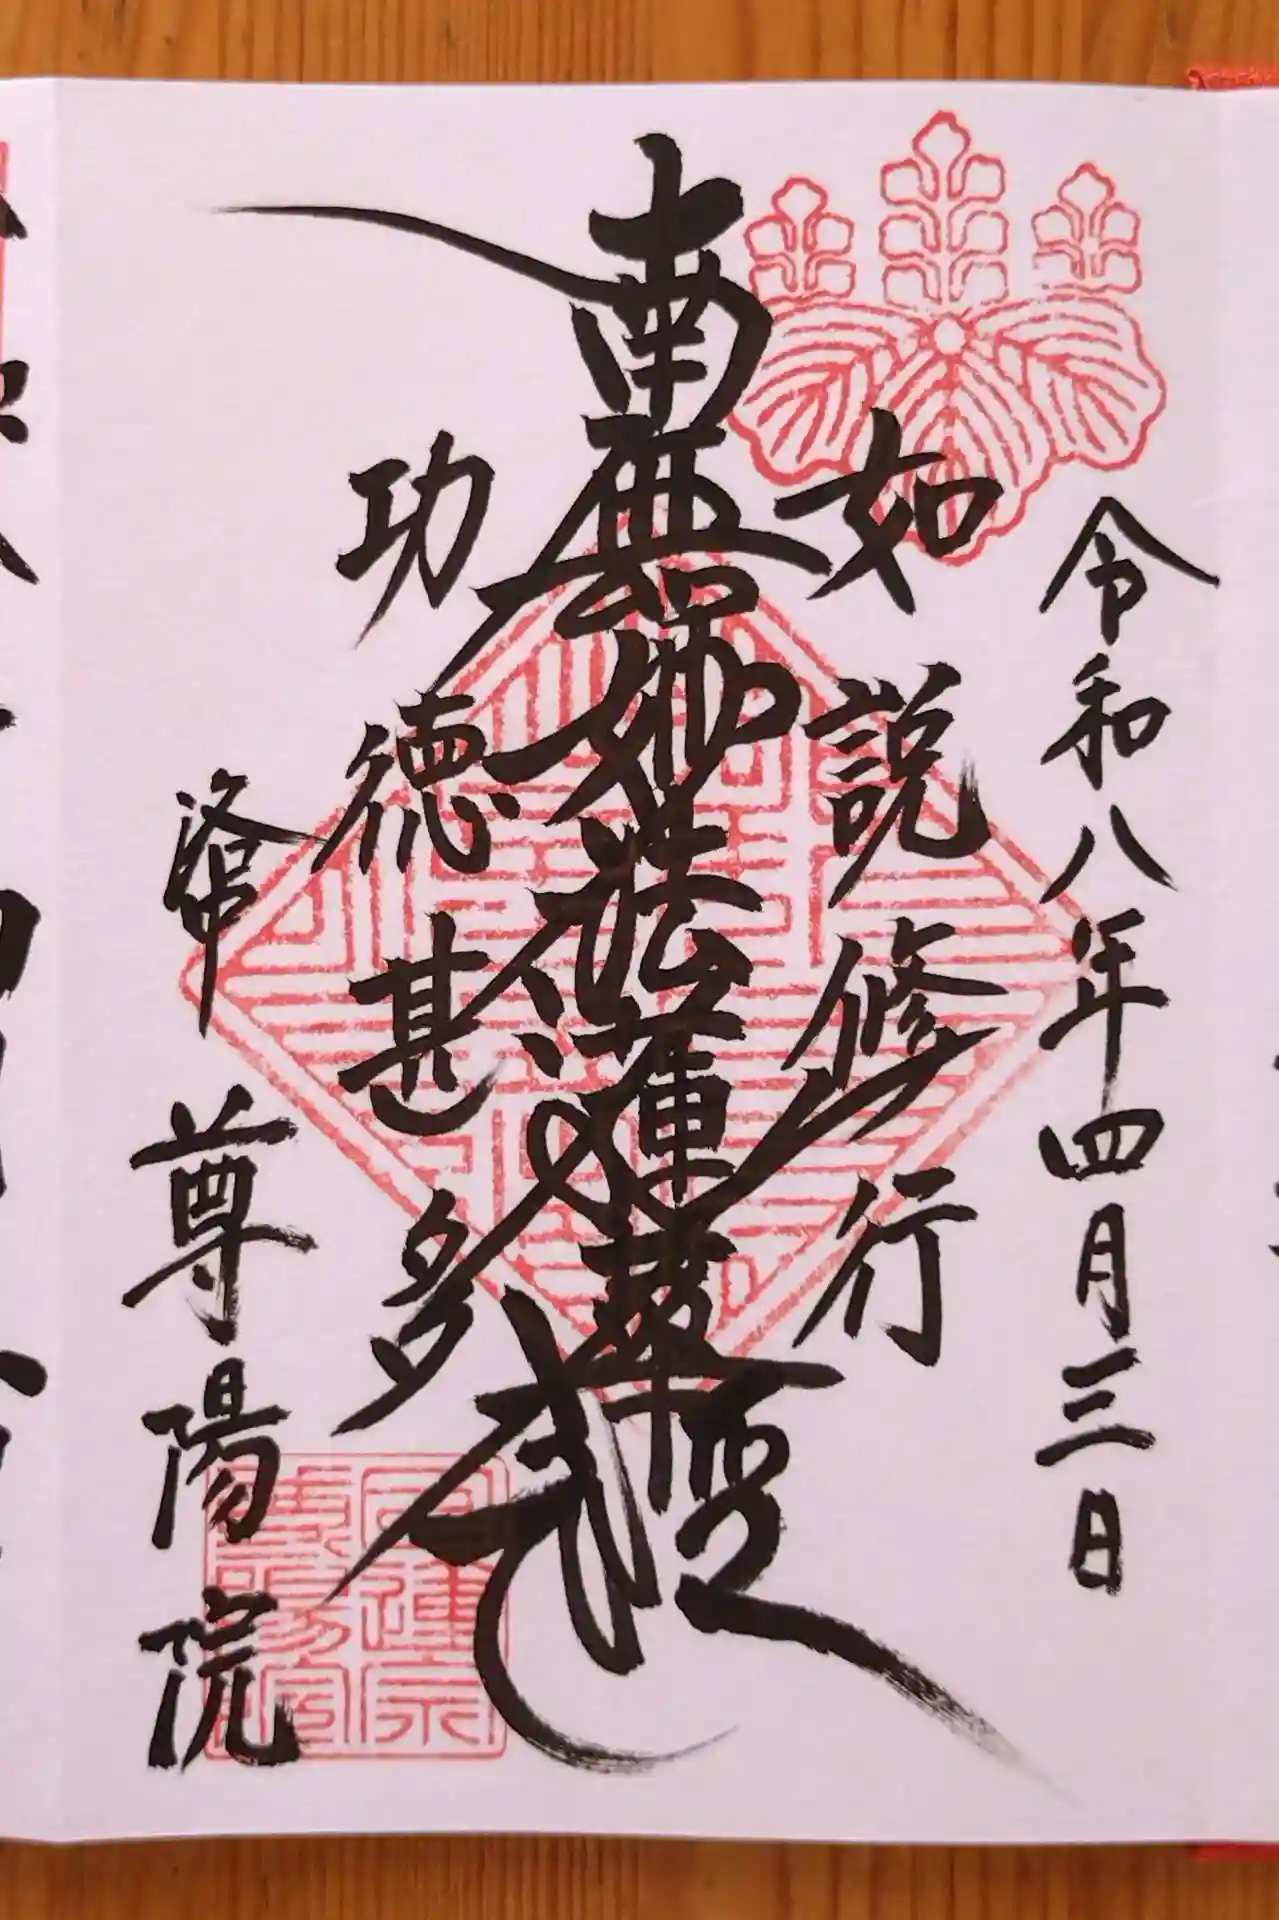 令和八年四月三日
如説修行
南無妙法蓮華経
功德甚多
洛中 尊陽院